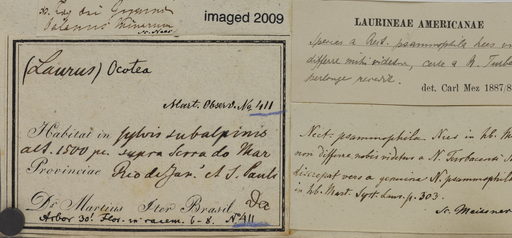 imaged 2009
(Laurus) Ocotea
Mart. Observ. No. 411
Habitat in sylvis subalpinis
alt. 1500 pe. supra Serra do Mar
Provinciae Rio de Jan. et S. Paulo
Dr Martius Iter Brasil
Arbor 30' Flor. in racem. 6-8. No 411
LAURINEAE AMERICANAE
Species a Nect. psammophila Nees
differre mihi videtur, certe a N.
det. Carl Mez 1887/8
Nect. psammophila Nees in hb. M
non differre nobis videtur a N. Turbacensi
discrepat vero a genuina N. psammophila
in hb. Mart. Syst. Laur. p. 303.
Meissner